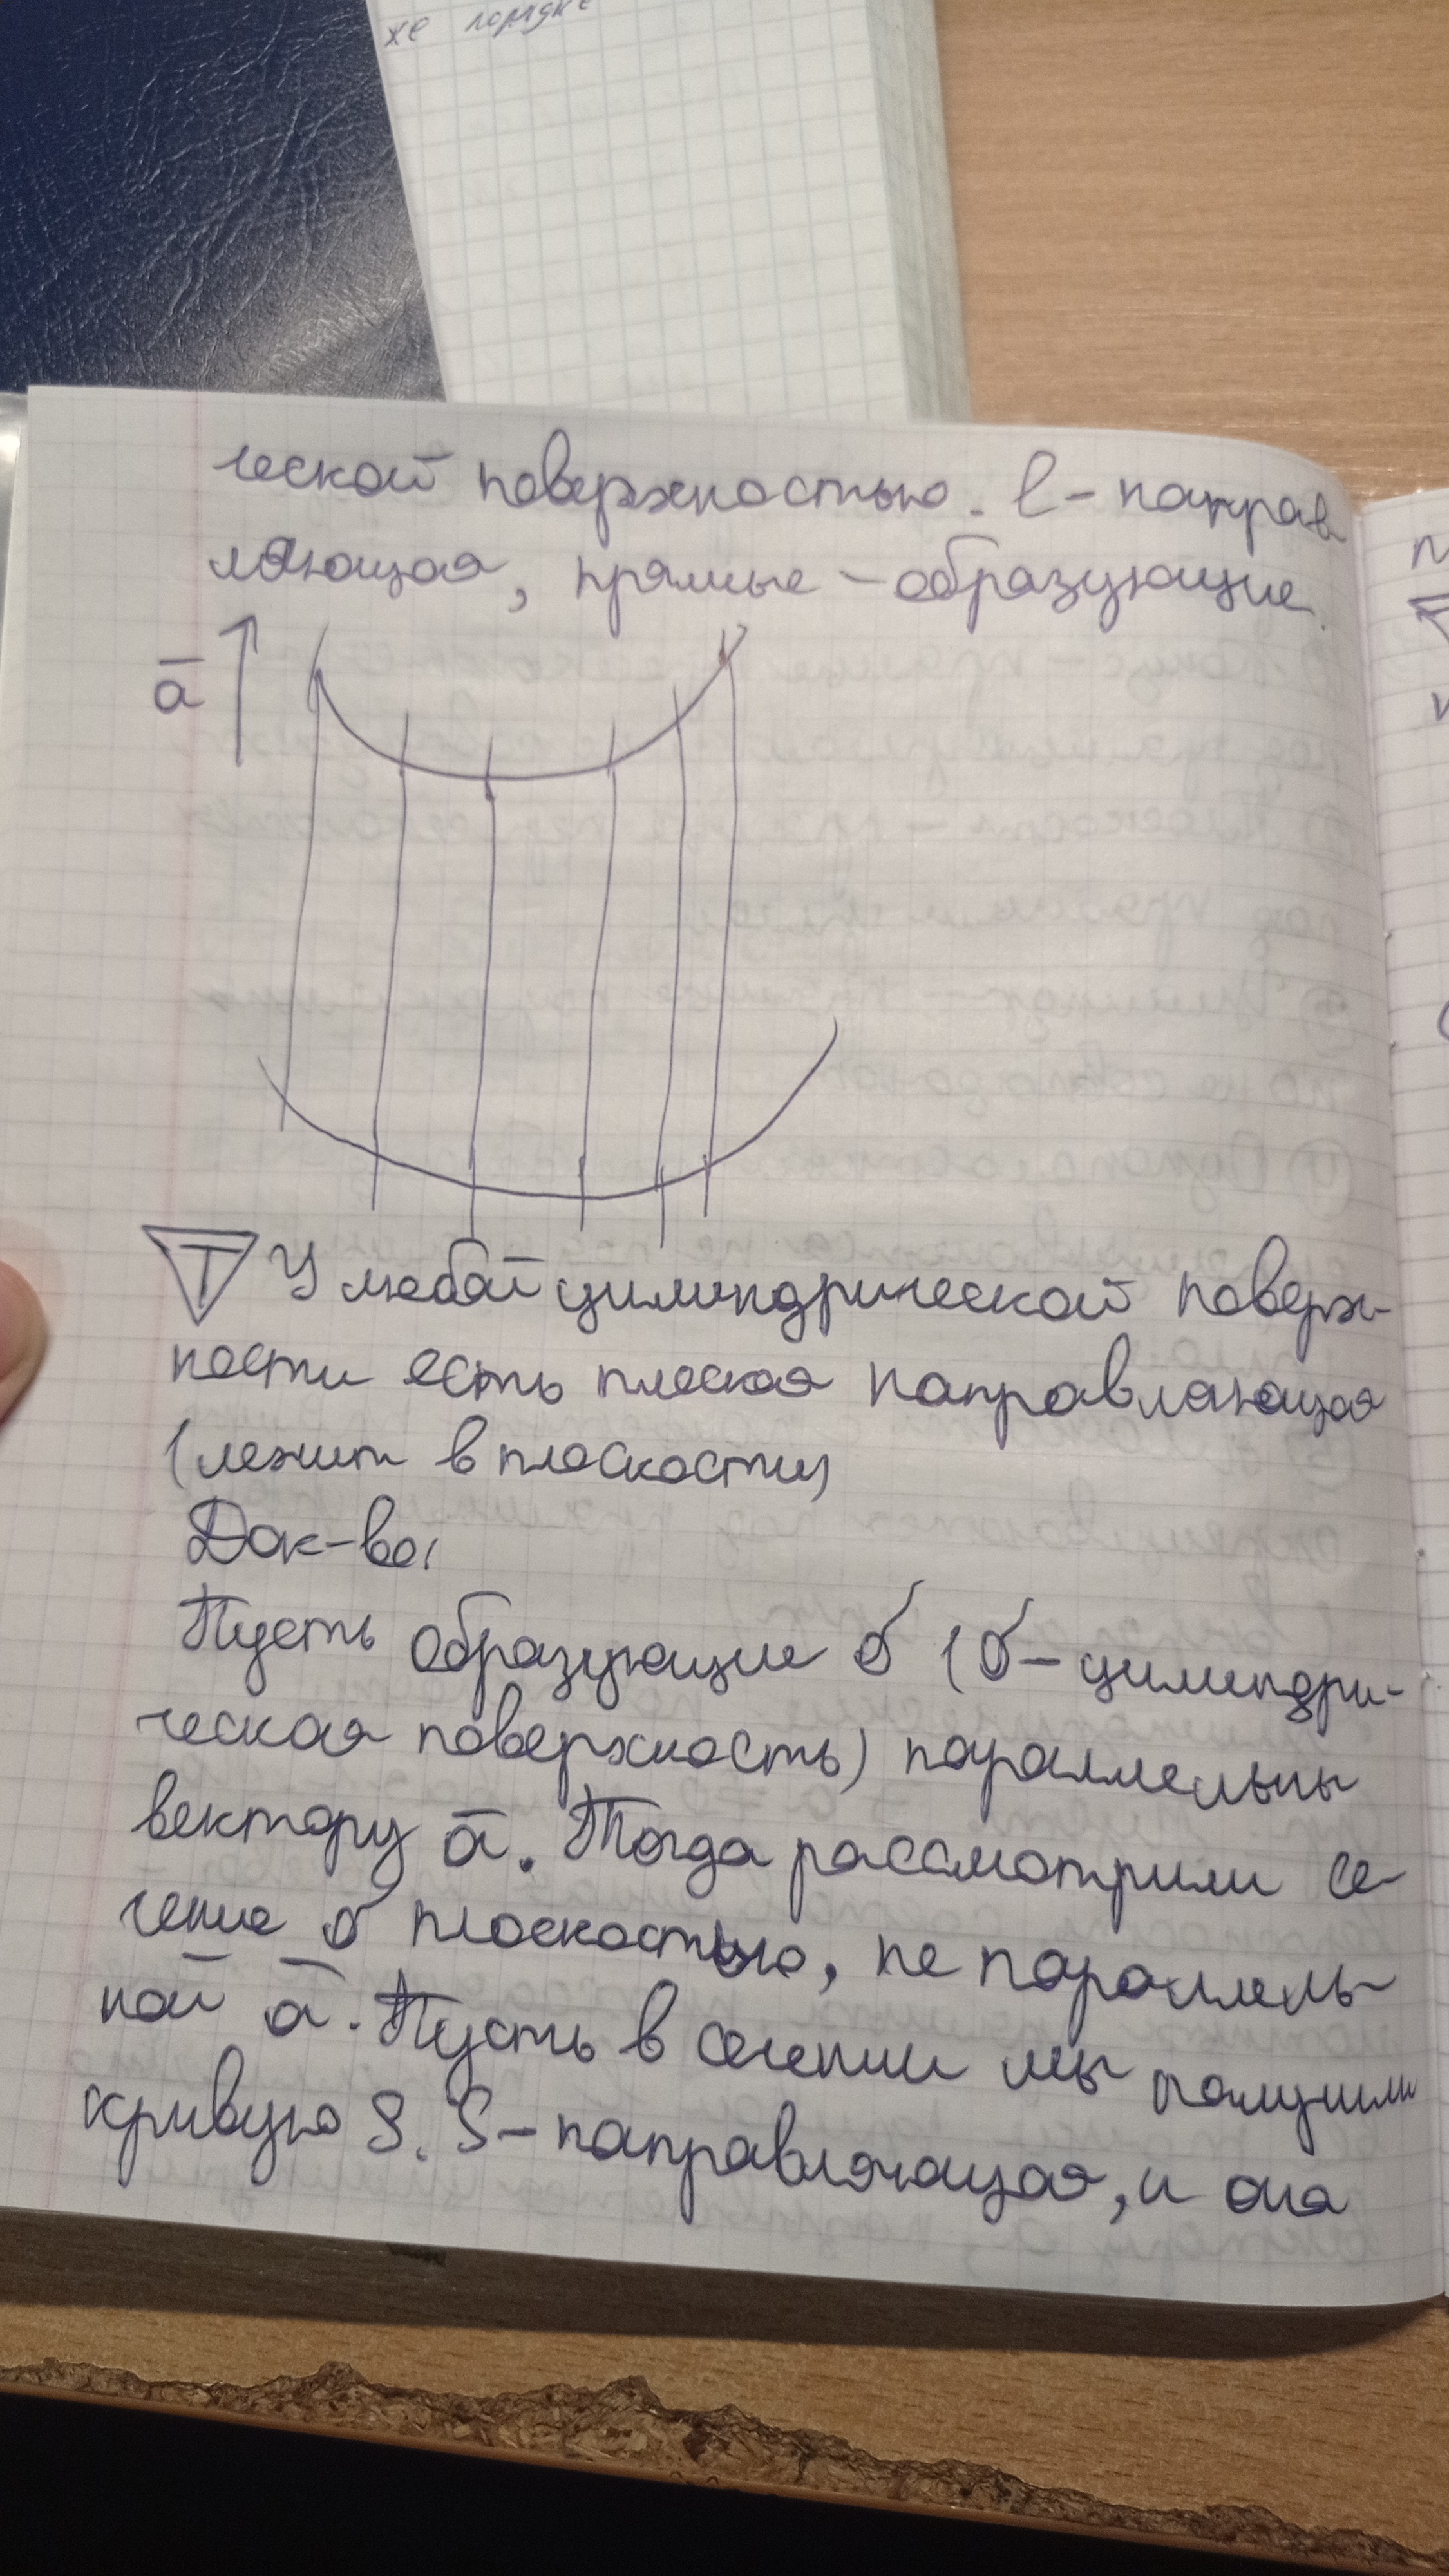 же порядке
ческой поверхностью. l – направ
ляющая, прямые – образующие.
ā
T У любой цилиндрической поверх-
ности есть плоская направляющая
(лежит в плоскости)
Док-во:
Пусть образующие σ (σ – цилиндри-
ческая поверхность) параллельны
вектору ā. Тогда рассмотрим се-
чение σ плоскостью, не параллель-
ной ā. Пусть в сечении мы получили
кривую S. S – направляющая, и она